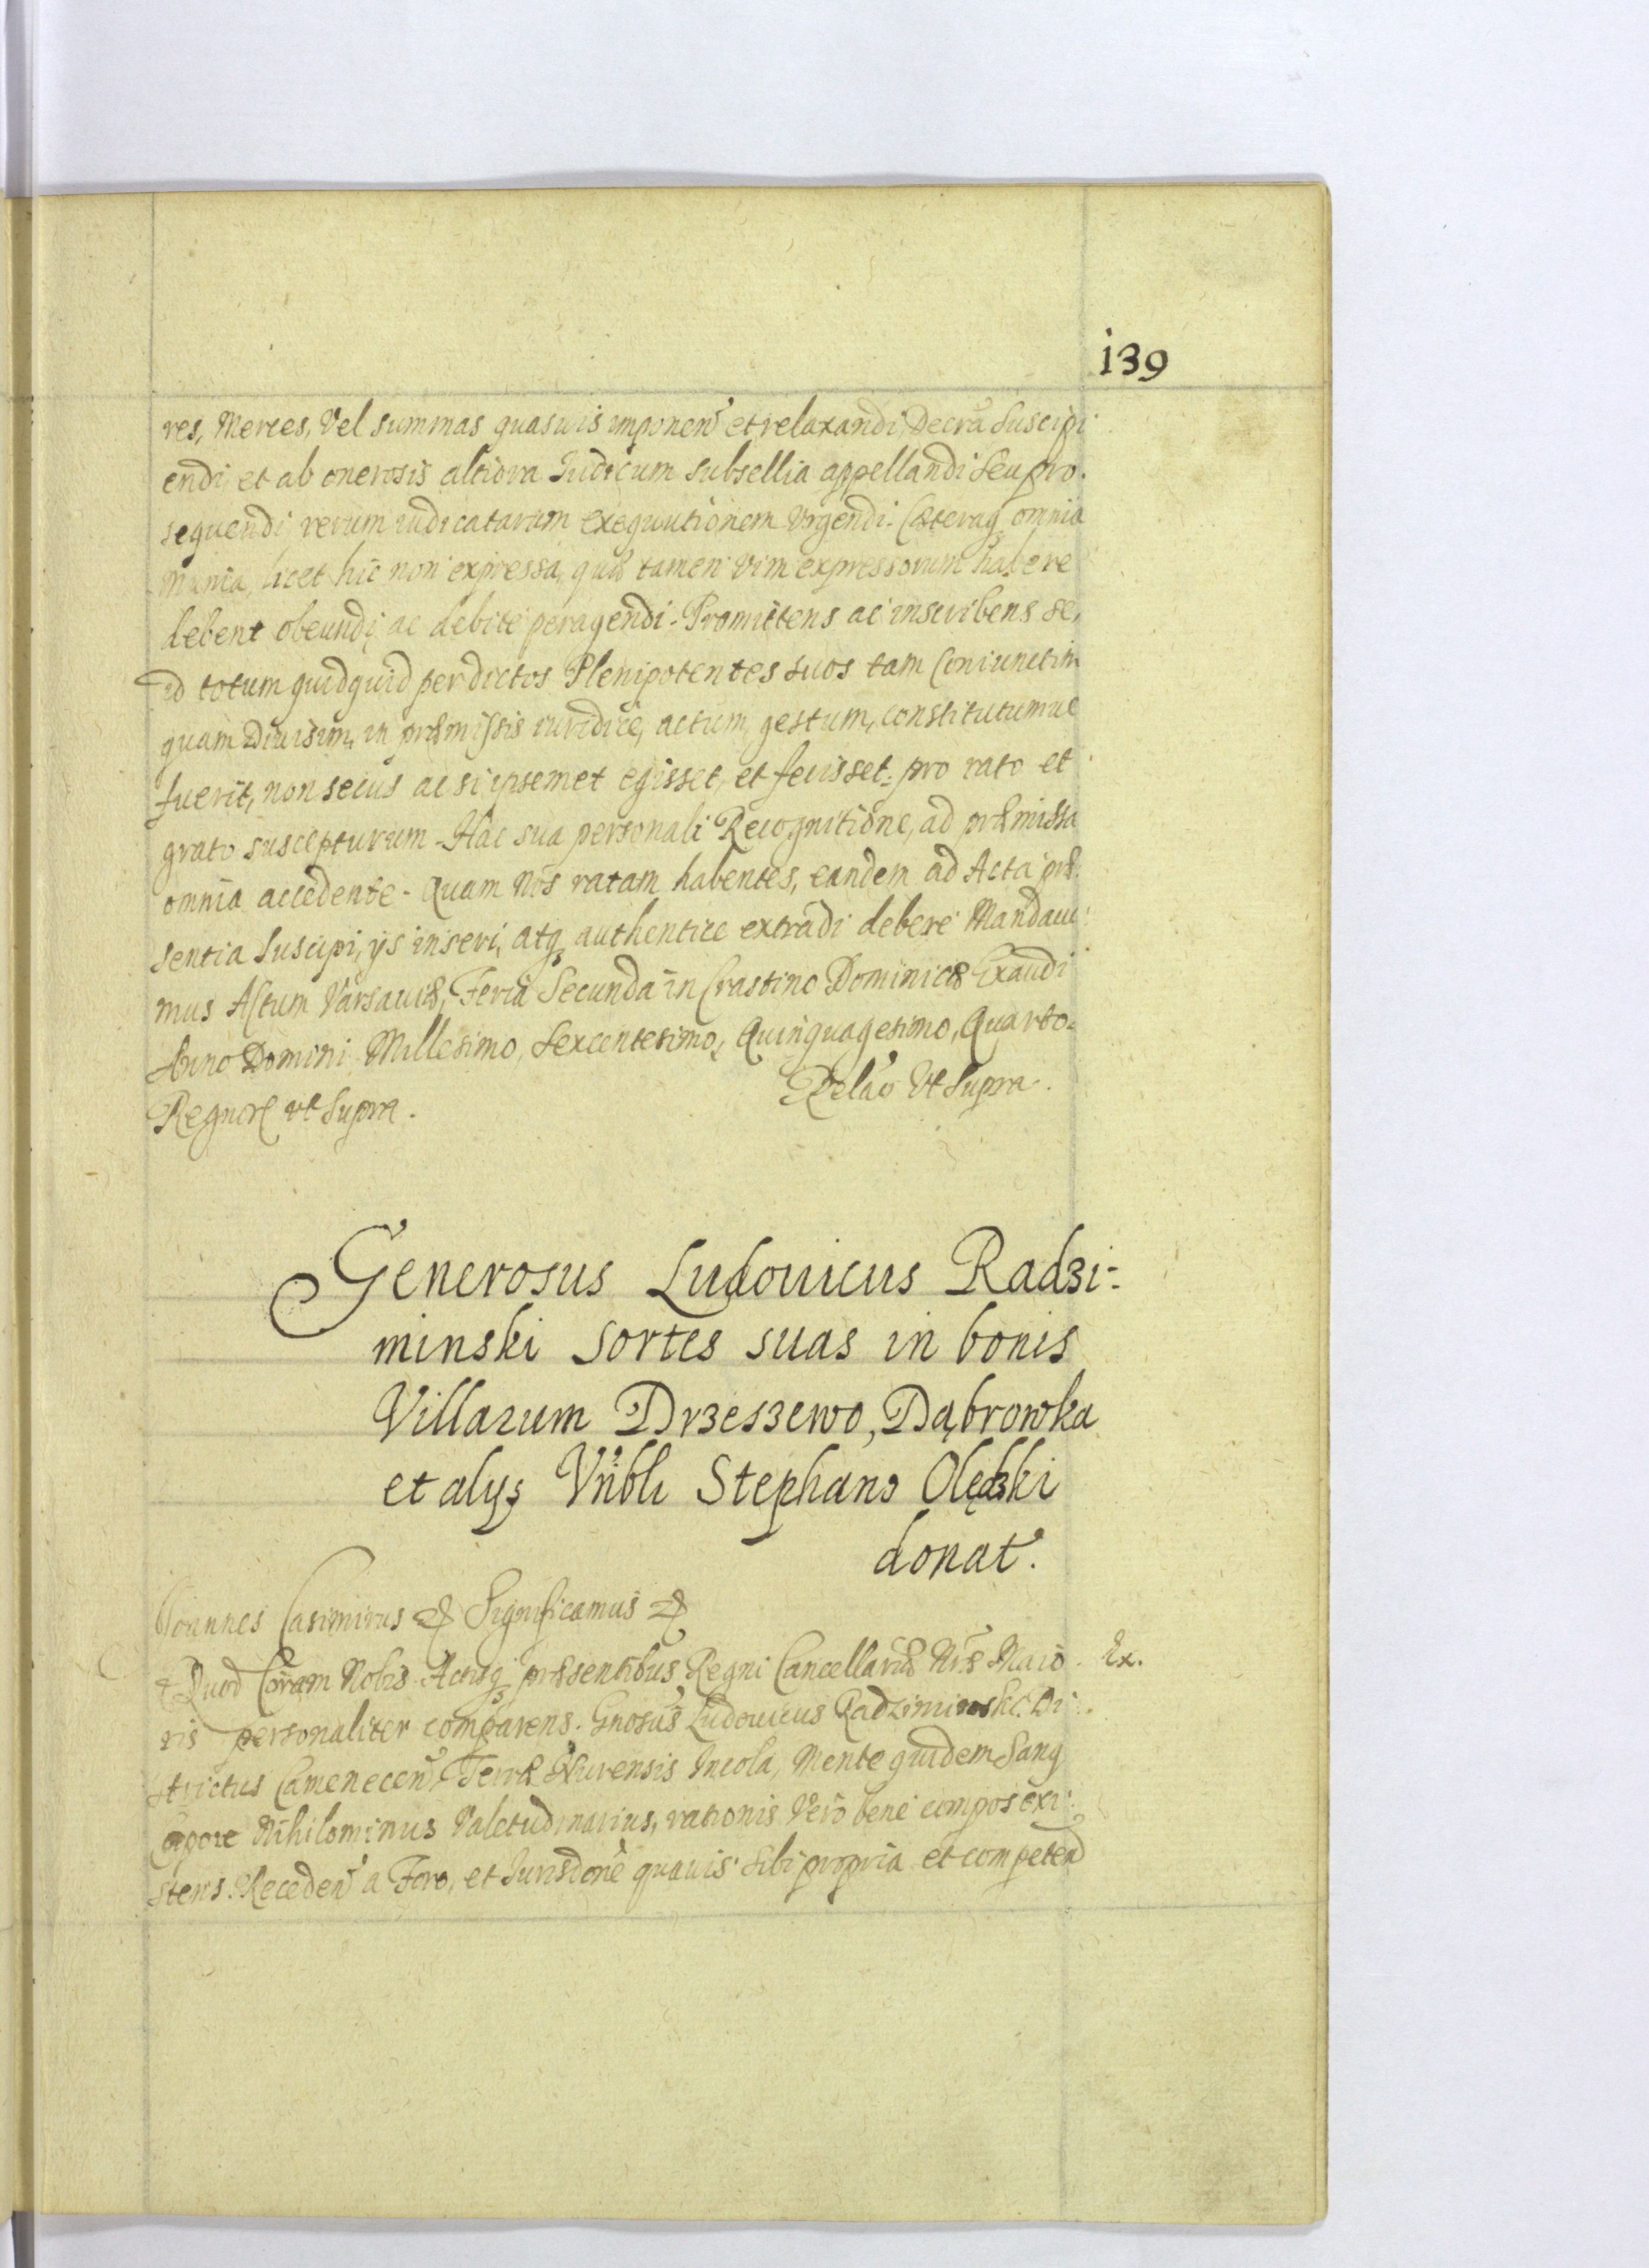 139
res, Merces, Vel summas quasuis imponen̄ et relaxandi, Decra Suscipi
endi et ab onerosis altiora Iudicum subsellia appellandi seu pro.
sequendi, rerum iudicatarum exequutionem Vrgendi. Cæteraq̃ omnia
munia, licet hic non expressa, quæ tamen vim expressorum habere
debent obeundi, ac debite peragendi. Promittens ac inscribens se,
id totum quidquid per dictos Plenipotentes suos tam Coniunctim
quam Diuisim, in præmissis iuridice, actum, gestum, constitutumue
fuerit, non secus ac si ipsemet egisset, et fecisset, pro rato et
grato suscepturum. Hac sua personali Recognitione, ad præmissa
omnia accedente. Quam Nos ratam habentes, eandem ad Acta præ
sentia Suscipi, ijs inseri, atq̃ authentice extradi debere Mandaui
mus Actum Varsauiæ, Feria Secunda in Crastino Dominicæ Exaudi
Anno Domini Millesimo, Sexcentesimo, Quinquagesimo, Quarto.
Regnor̃ vt Supra. Relao Vt Supra.
Generosus Ludouicus Radzi-
minski sortes suas in bonis
Villarum Drzeszewo, Dąbrowka
et alys Vrībli Stephano Olędzki
donat.
Ioannes Casimirus & Significamus &
Quod Coram Nobis Actisq̃ præsentibus Regni Cancellariæ Nr̄æ Maio Ex.
ris personaliter comparens. Gnosus Ludouicus Radziminski. Di
strictus Camenecen̄, Terræ Nurensis Incola, Mente quidem Sanq
Corpore Nihilominus Valetudinarius, rationis Vero bene compos exi
stens. Receden̄ a Foro, et Iurisdone quauis sibi propria et competen̄